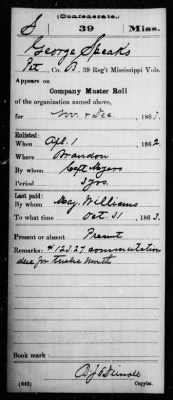 (Confederate.)
S 39 Miss.
George Speaks
Pvt, Co. B, 39 Reg't Mississippi Vols.
Appears on
Company Muster Roll
of the organization named above,
for Nov & Dec, 1863.
Enlisted:
When Apl. 1, 1862.
Where Brandon
By whom Capt Myers
Period 3 yrs.
Last paid:
By whom Maj. Williams
To what time Oct 31, 1863.
Present or absent Present
Remarks: $123.27 commutation
due for twelve month
Book mark:
(642) Copyist.